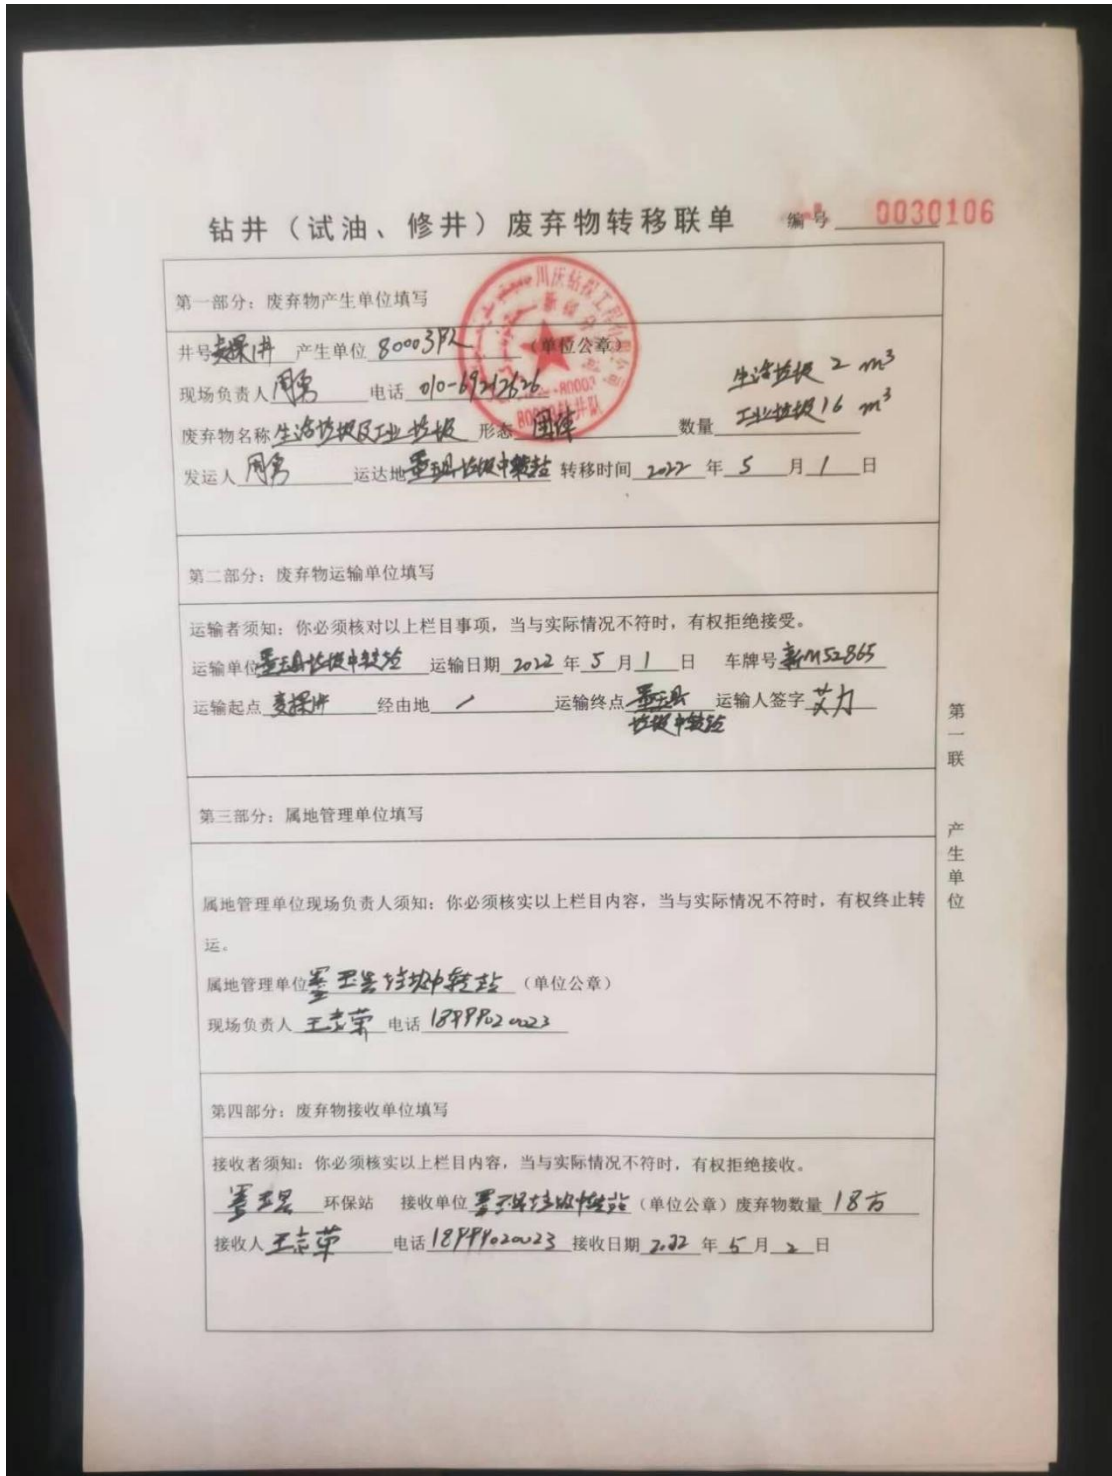 钻井（试油、修井）废弃物转移联单 编号 0030106
第一部分：废弃物产生单位填写
井号麦探1井 产生单位 80003队 （单位公章）
现场负责人 周勇 电话 010-69212626 生活垃圾 2 m³
废弃物名称 生活垃圾及工业垃圾 形态 固体 数量 工业垃圾16 m³
发运人 周勇 运达地 墨玉县垃圾中转站 转移时间 2022 年 5 月 1 日
第二部分：废弃物运输单位填写
运输者须知：你必须核对以上栏目事项，当与实际情况不符时，有权拒绝接受。
运输单位 墨玉县垃圾中转站 运输日期 2022 年 5 月 1 日 车牌号 新M52865
运输起点 麦探1井 经由地 / 运输终点 墨玉县 运输人签字 艾力
垃圾中转站
第三部分：属地管理单位填写
属地管理单位现场负责人须知：你必须核实以上栏目内容，当与实际情况不符时，有权终止转
运。
属地管理单位 墨玉县垃圾中转站 （单位公章）
现场负责人 王志荣 电话
第四部分：废弃物接收单位填写
接收者须知：你必须核实以上栏目内容，当与实际情况不符时，有权拒绝接收。
墨玉县 环保站 接收单位 墨玉县垃圾中转站（单位公章）废弃物数量 18方
接收人 王志荣 电话 接收日期 2022 年 5 月 2 日
第一联 产生单位
川庆钻探工程有限公司